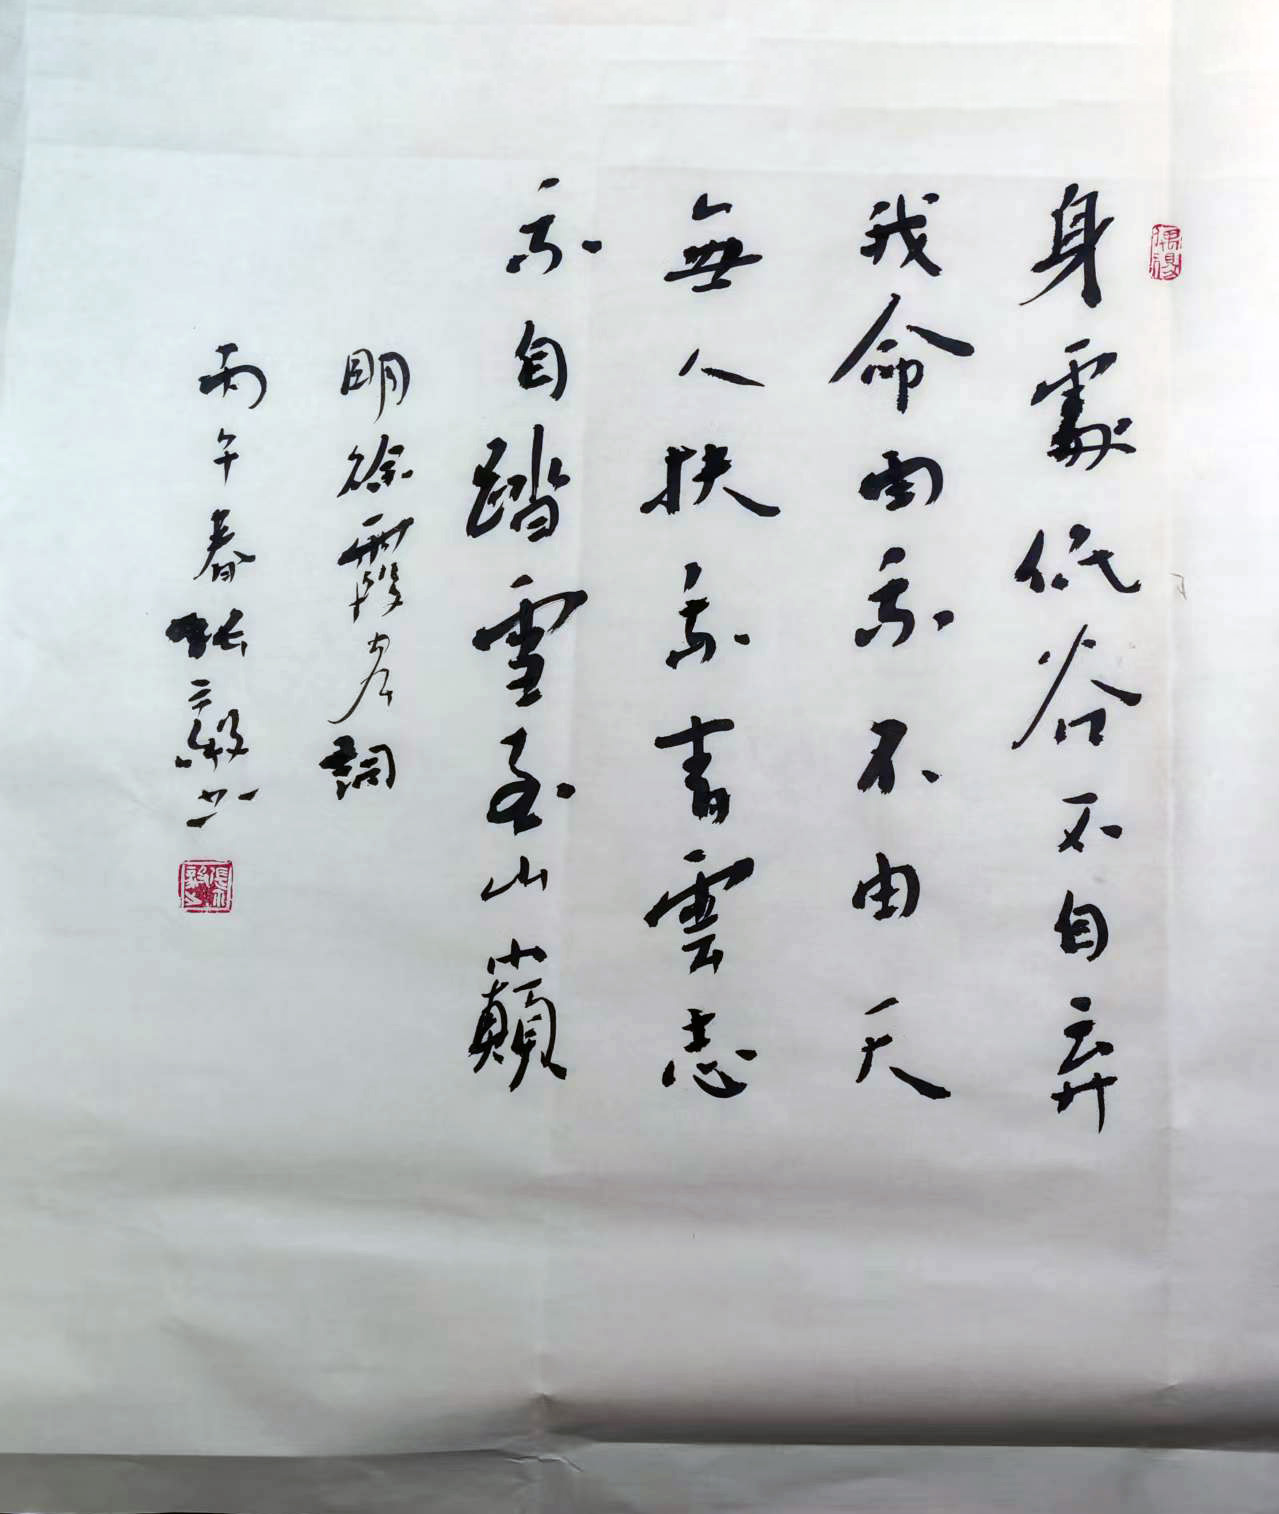 身處低谷不自弃
我命由我不由天
無人扶我青雲志
我自踏雪至山巔
明徐霞客詞
丙午春張毅书